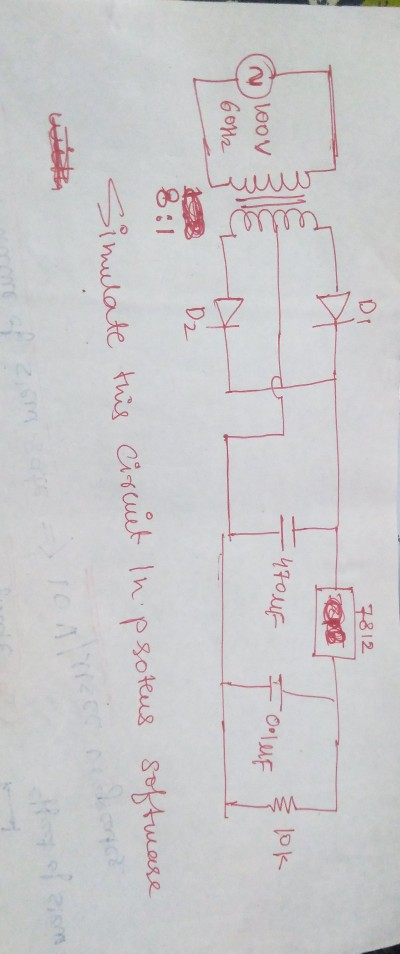 100V
60Hz
8:1
D1
D2
470µF
7812
0.1µF
10K
Simulate this circuit In proteus software